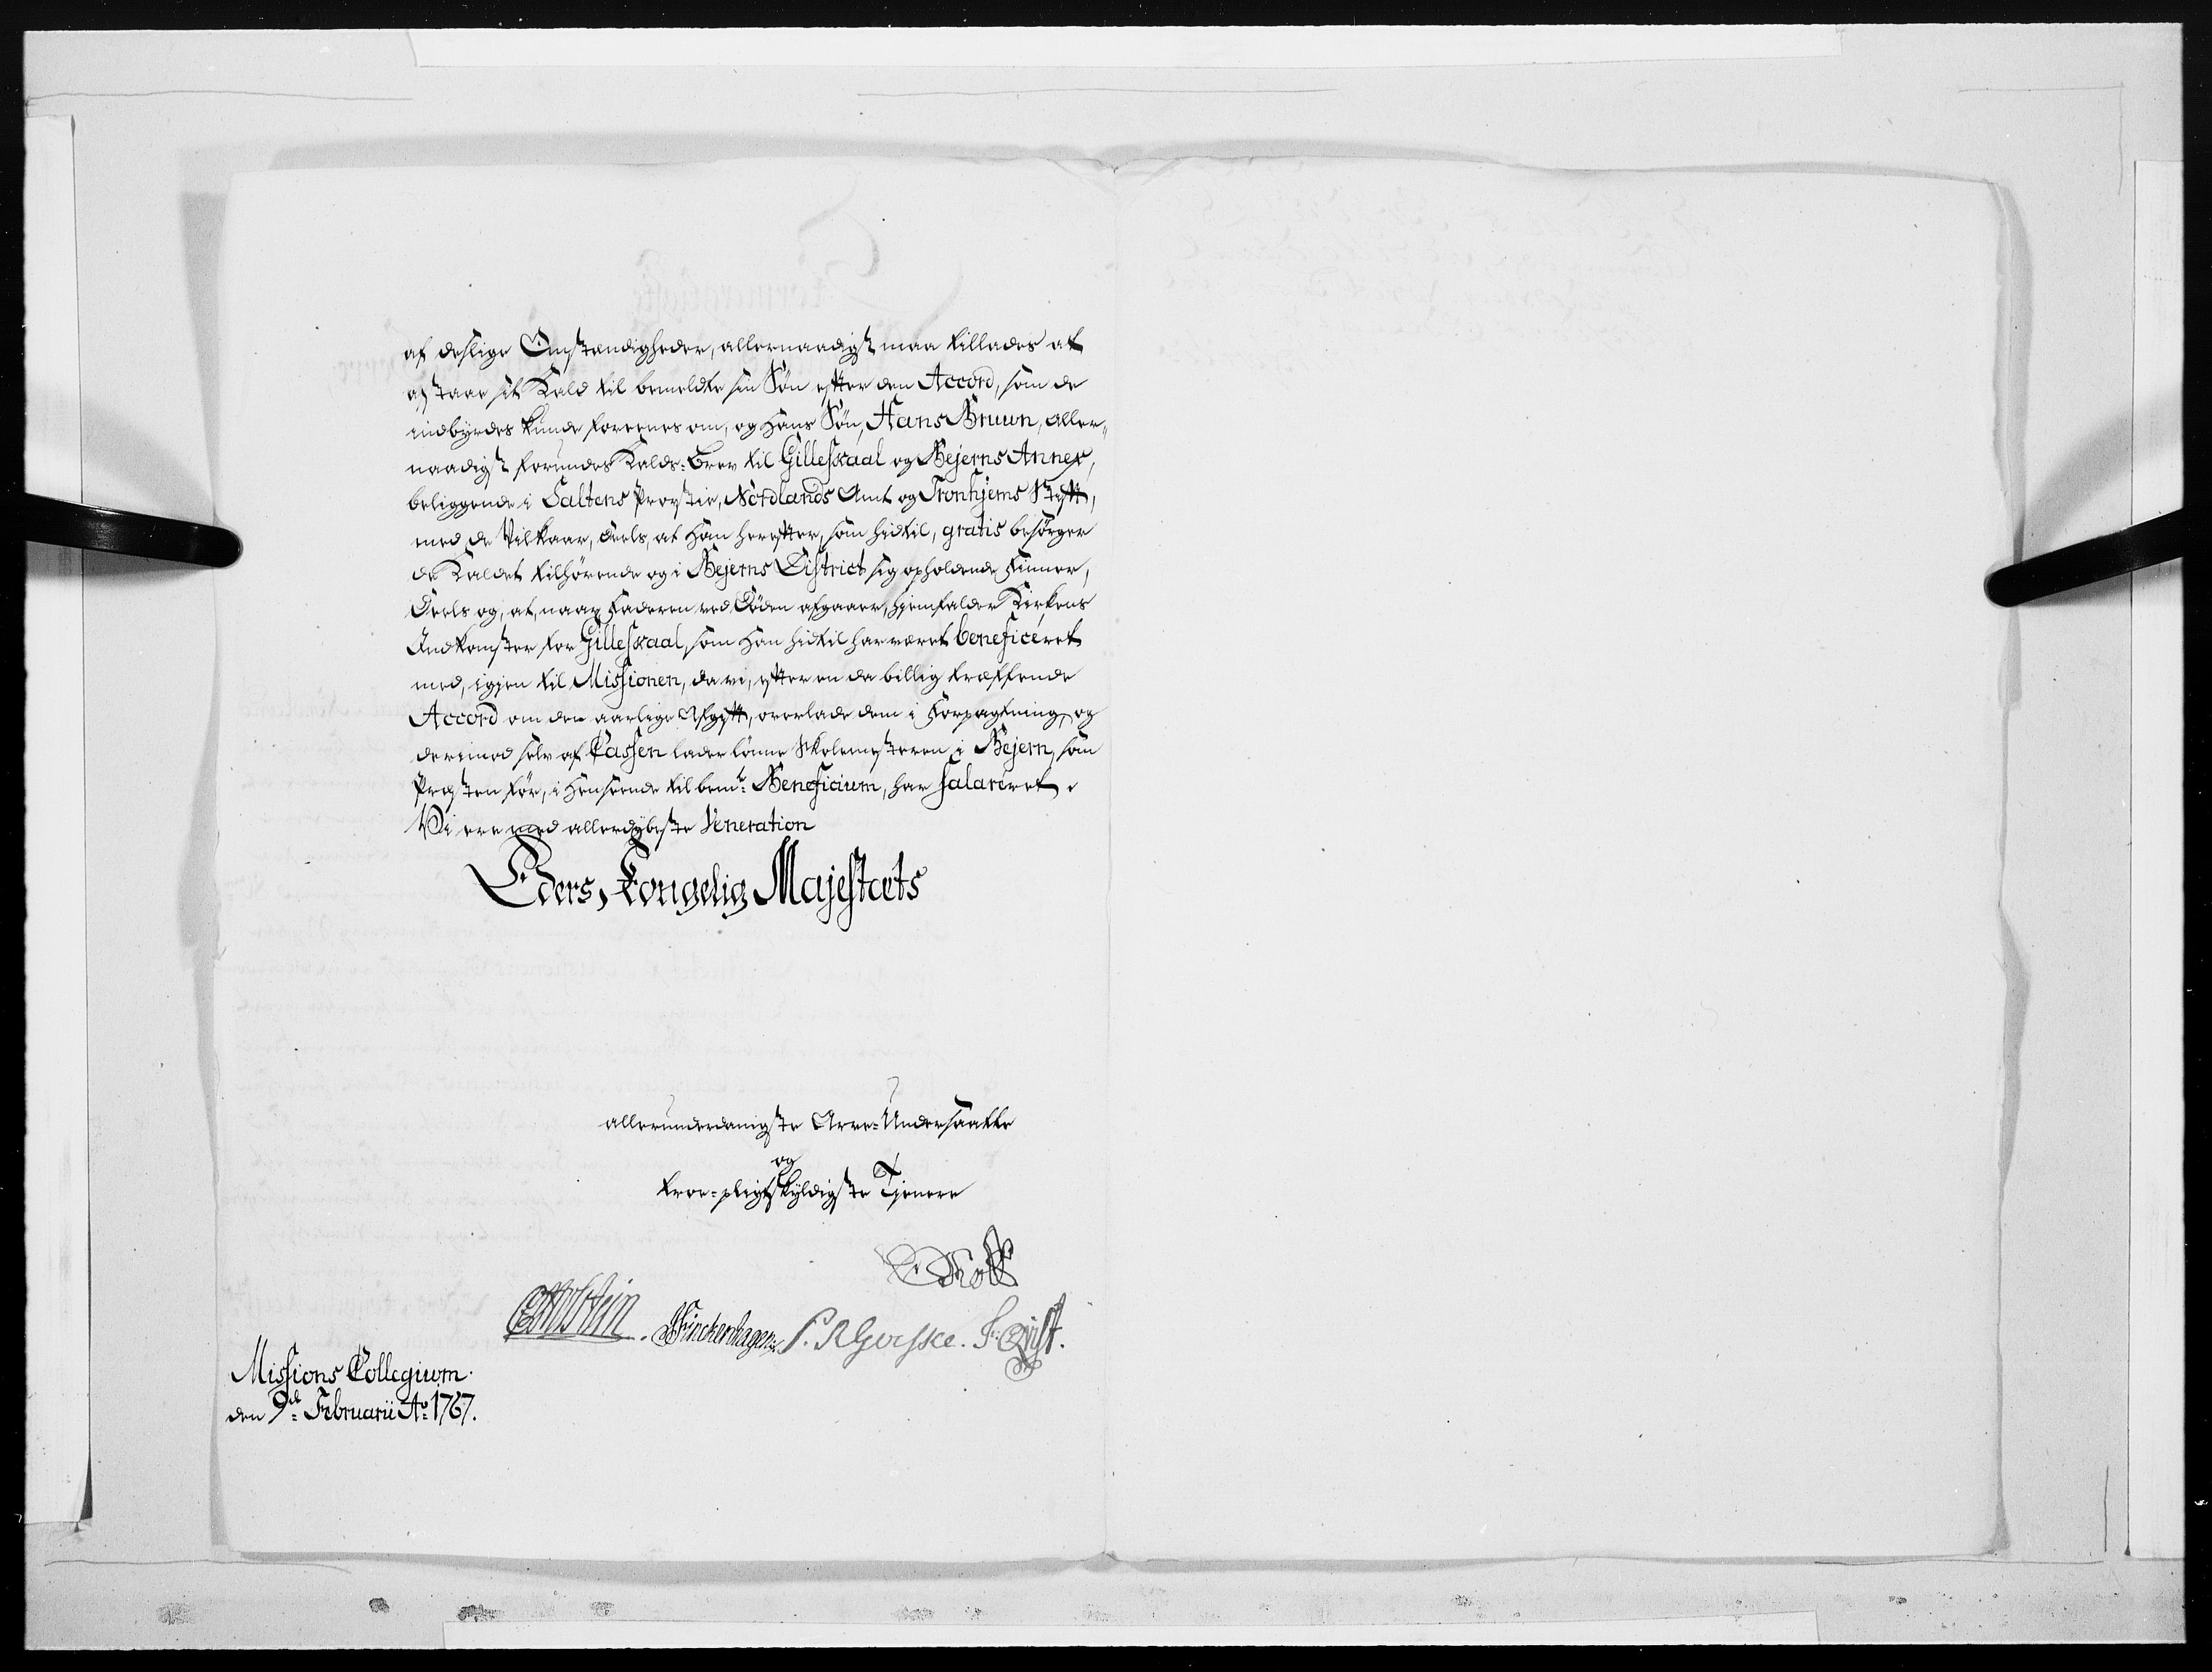 af deslige Omstændigheder, allernaadigst maa tillades at
afstaae sit Kald til bemeldte sin Søn efter den Accord, som de
indbyrdes kunde foreenes om, og hans Søn, Hans Bruun, aller-
naadigst forundes Kalds-Brev til Gilleskaal og Bejerns Annex,
beliggende i Saltens Provstie, Nordlands Amt og Tronhjems Stift,
med de Vilkaar, deels, at han herefter, som hidtil, gratis besørger
de Kaldet tilhørende og i Bejerns District sig opholdende Finner,
Deels og, at, naar Faderen ved Døden afgaaer, hjemfalder Kirkens
Indkomster for Gilleskaal, som han hidtil har været beneficeret
med, igjen til Missionen, da vi, efter en da billig træffende
Accord om den aarlige Afgift, overlade dem i Forpagtning, og
derimod selv af Cassen lade lønne Skolemesteren i Bejern, som
Præsten før, i Henseende til bemte Beneficium, har salareret.
Vi ere med allerdybeste Veneration
Eders Kongelig Majestæts
allerunderdanigste Arve-Undersaatte
og
troe-pligtskyldigste Tjenere
Holstein. Finckenhagen. F. Qvist.
Missions Collegium.
den 9de Februarii Ao 1767.